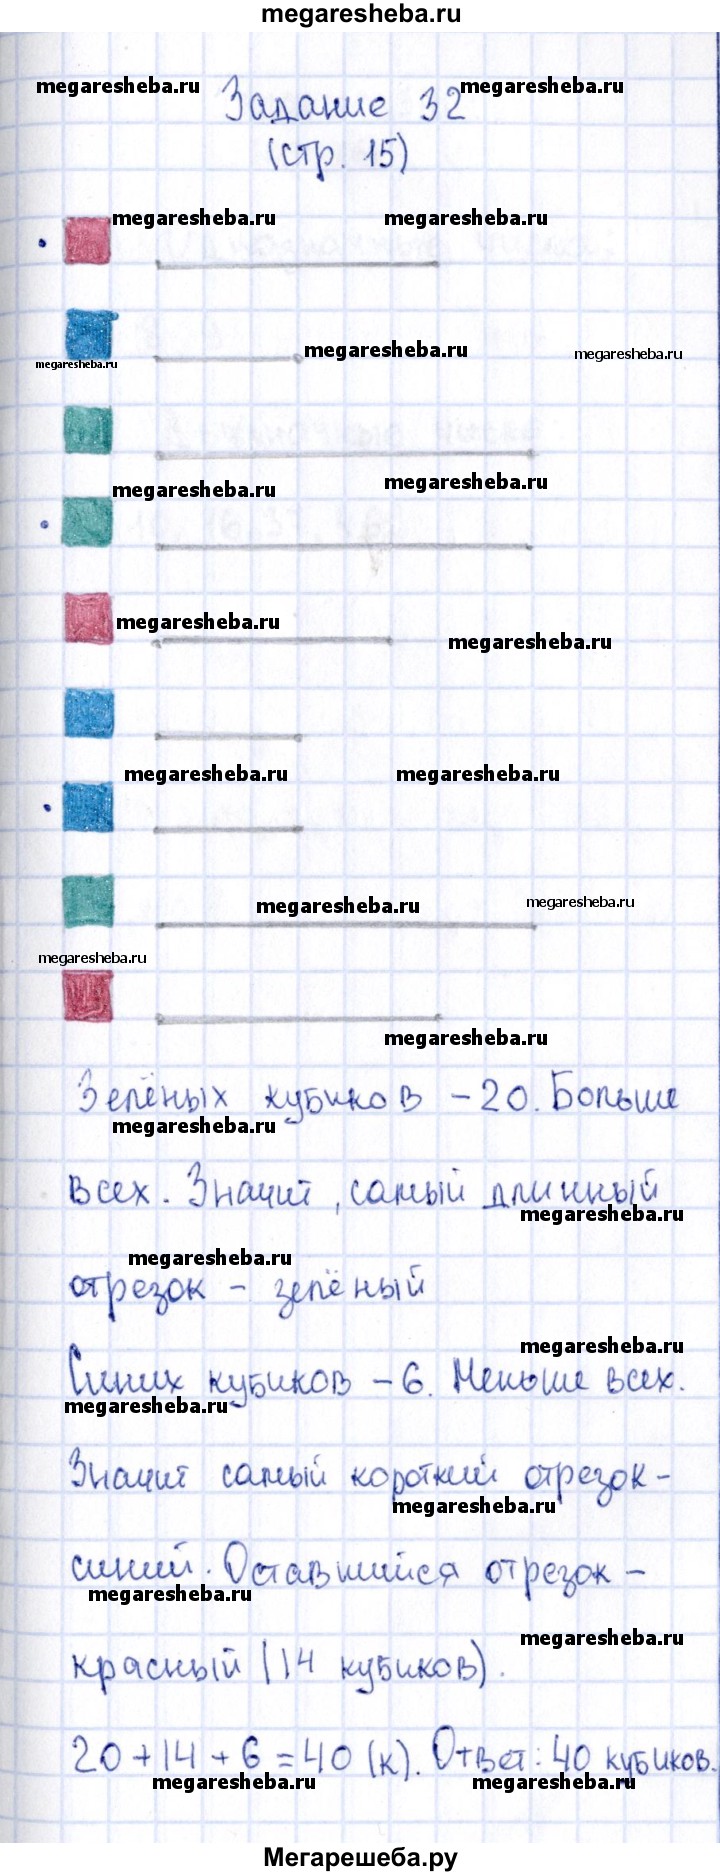 megaresheba.ru
megaresheba.ru megaresheba.ru
Задание 32
(стр. 15)
megaresheba.ru megaresheba.ru
megaresheba.ru megaresheba.ru
megaresheba.ru
megaresheba.ru megaresheba.ru
megaresheba.ru megaresheba.ru
megaresheba.ru megaresheba.ru
megaresheba.ru megaresheba.ru
megaresheba.ru
megaresheba.ru
Зелёных кубиков - 20. Больше
megaresheba.ru
всех. Значит, самый длинный
megaresheba.ru
megaresheba.ru
отрезок - зелёный
megaresheba.ru
Синих кубиков - 6. Меньше всех.
megaresheba.ru
Значит самый короткий отрезок -
megaresheba.ru
синий. Оставшийся отрезок -
megaresheba.ru
megaresheba.ru
красный (14 кубиков).
20 + 14 + 6 = 40 (к). Ответ: 40 кубиков.
megaresheba.ru megaresheba.ru
Мегарешеба.ру